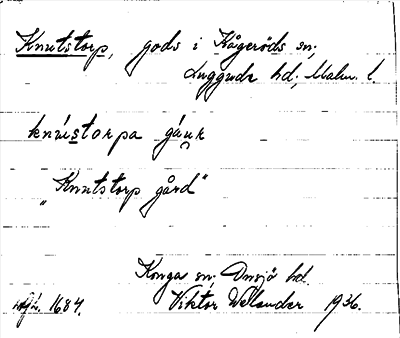 Knutstorp, gods i Kågeröds sn,
Luggude hd, Malm. l.
knúistorpa gá̯ur
"Knutstorp gård"
Konga sn, Onsjö hd.
1684. Viktor Welander 1936.